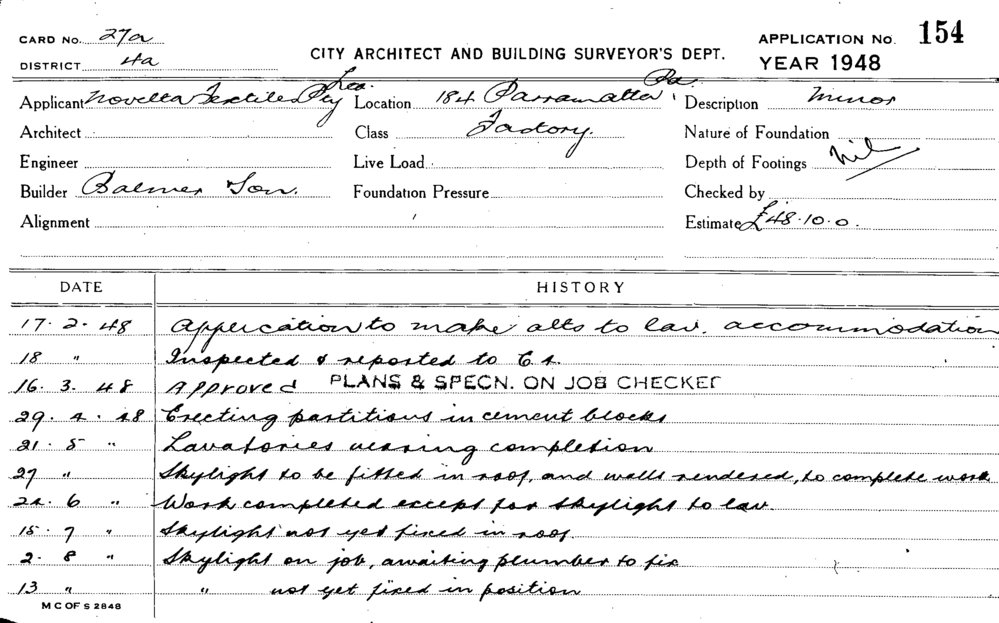 CARD No. 27a
DISTRICT 4a
CITY ARCHITECT AND BUILDING SURVEYOR'S DEPT.
APPLICATION No. 154
YEAR 1948
Applicant Novelta Textiles Pty Ltd. Location 184 Parramatta Rd. Description Minor
Architect Class Factory. Nature of Foundation
Engineer Live Load Depth of Footings Nil
Builder Balmer Son. Foundation Pressure Checked by
Alignment Estimate £48.10.0.
DATE HISTORY
17. 2. 48 Application to make alts to lav. accommodation
18 " Inspected & reported to C.A.
16. 3. 48 Approved PLANS & SPECN. ON JOB CHECKED
29. 4. 48 Erecting partitions in cement blocks
21. 5 " Lavatories nearing completion
27 " Skylight to be fitted in roof, and walls rendered, to complete work
24. 6 " Work completed except for skylight to lav.
15. 7 " Skylight not yet fixed in roof.
2. 8 " Skylight on job, awaiting plumber to fix
13 " " not yet fixed in position
M C OF S 2848